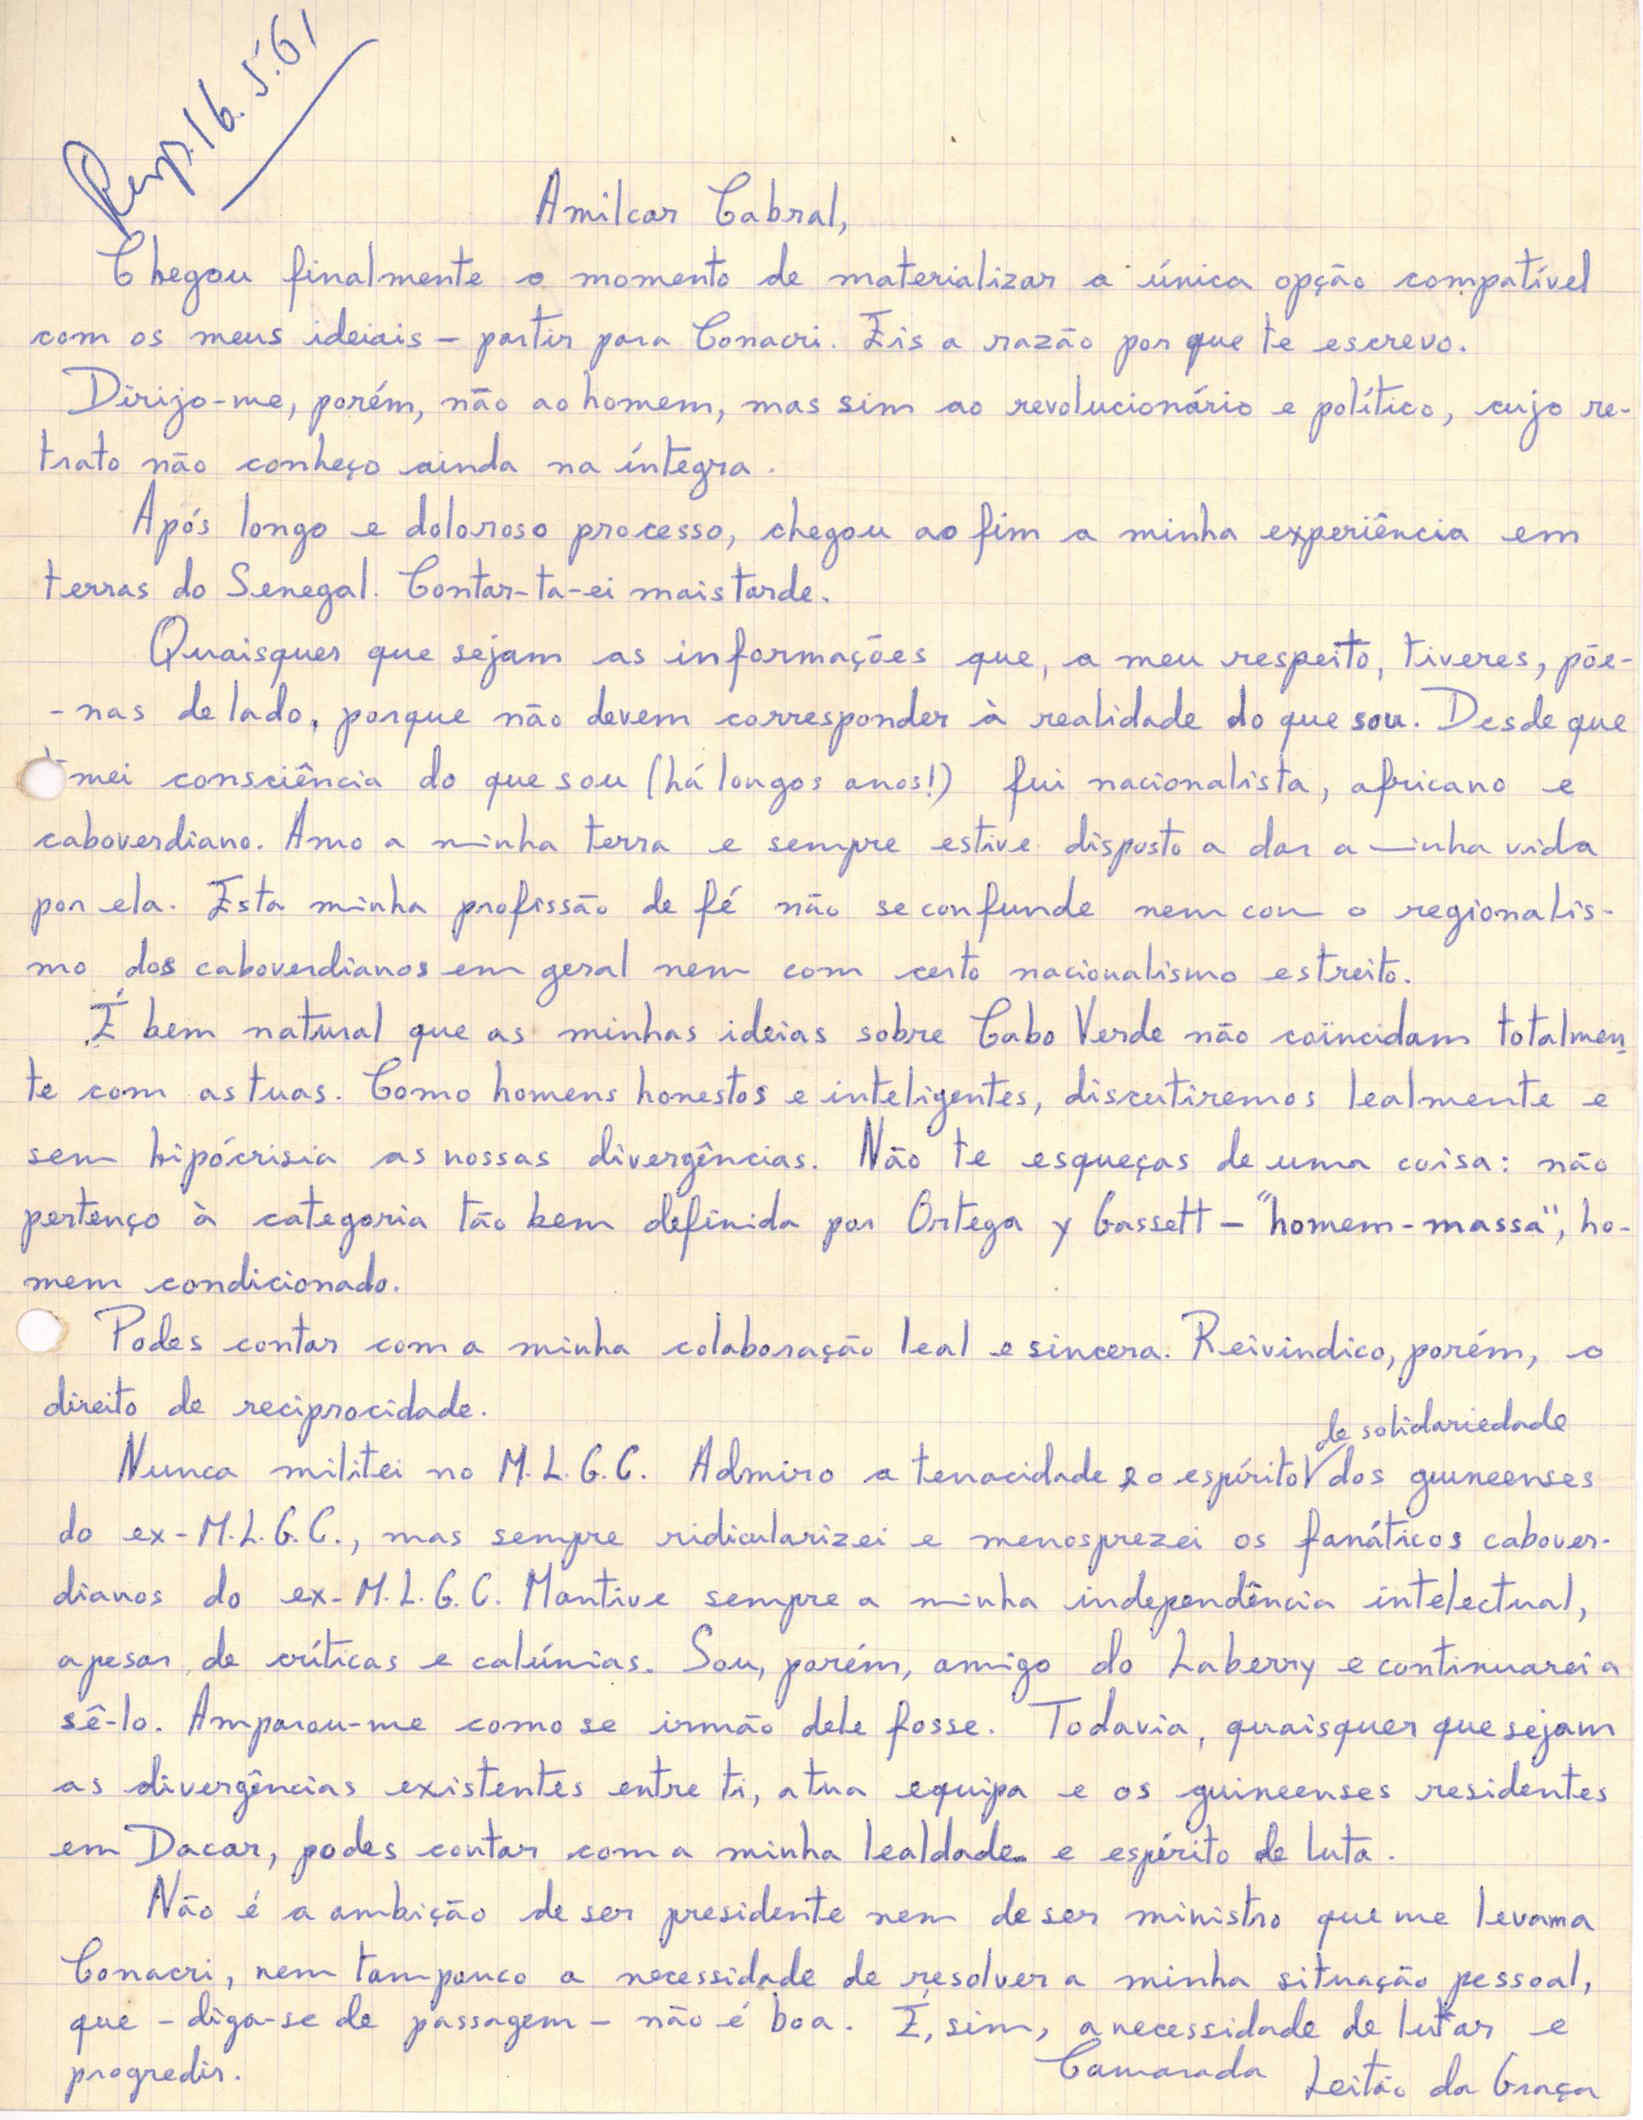 Resp. 16.5.61
Amilcar Cabral,
Chegou finalmente o momento de materializar a única opção compatível
com os meus ideiais – partir para Conacri. Eis a razão por que te escrevo.
Dirijo-me, porém, não ao homem, mas sim ao revolucionário e político, cujo re-
trato não conheço ainda na íntegra.
Após longo e doloroso processo, chegou ao fim a minha experiência em
terras do Senegal. Contar-ta-ei mais tarde.
Quaisquer que sejam as informações que, a meu respeito, tiveres, põe-
-nas de lado, porque não devem corresponder à realidade do que sou. Desde que
mei consciência do que sou (há longos anos!) fui nacionalista, africano e
caboverdiano. Amo a minha terra e sempre estive disposto a dar a minha vida
por ela. Esta minha profissão de fé não se confunde nem com o regionalis-
mo dos caboverdianos em geral nem com certo nacionalismo estreito.
É bem natural que as minhas ideias sobre Cabo Verde não coïncidam totalmen
te com as tuas. Como homens honestos e inteligentes, discutiremos lealmente e
sem hipócrisia as nossas divergências. Não te esqueças de uma coisa: não
pertenço à categoria tão bem definida por Ortega y Gassett – "homem-massa", ho-
mem condicionado.
Podes contar com a minha colaboração leal e sincera. Reivindico, porém, o
direito de reciprocidade.
Nunca militei no M.L.G.C. Admiro a tenacidade e o espírito de solidariedade dos guineenses
do ex-M.L.G.C., mas sempre ridicularizei e menosprezei os fanáticos cabover-
dianos do ex-M.L.G.C. Mantive sempre a minha independência intelectual,
apesar de críticas e calúnias. Sou, porém, amigo do Laberry e continuarei a
sê-lo. Amparou-me como se irmão dele fosse. Todavia, quaisquer que sejam
as divergências existentes entre ti, a tua equipa e os guineenses residentes
em Dacar, podes contar com a minha lealdade e espírito de luta.
Não é a ambição de ser presidente nem de ser ministro que me levam a
Conacri, nem tampouco a necessidade de resolver a minha situação pessoal,
que – diga-se de passagem – não é boa. É, sim, a necessidade de lutar e
progredir.
Camarada Leitão da Graça